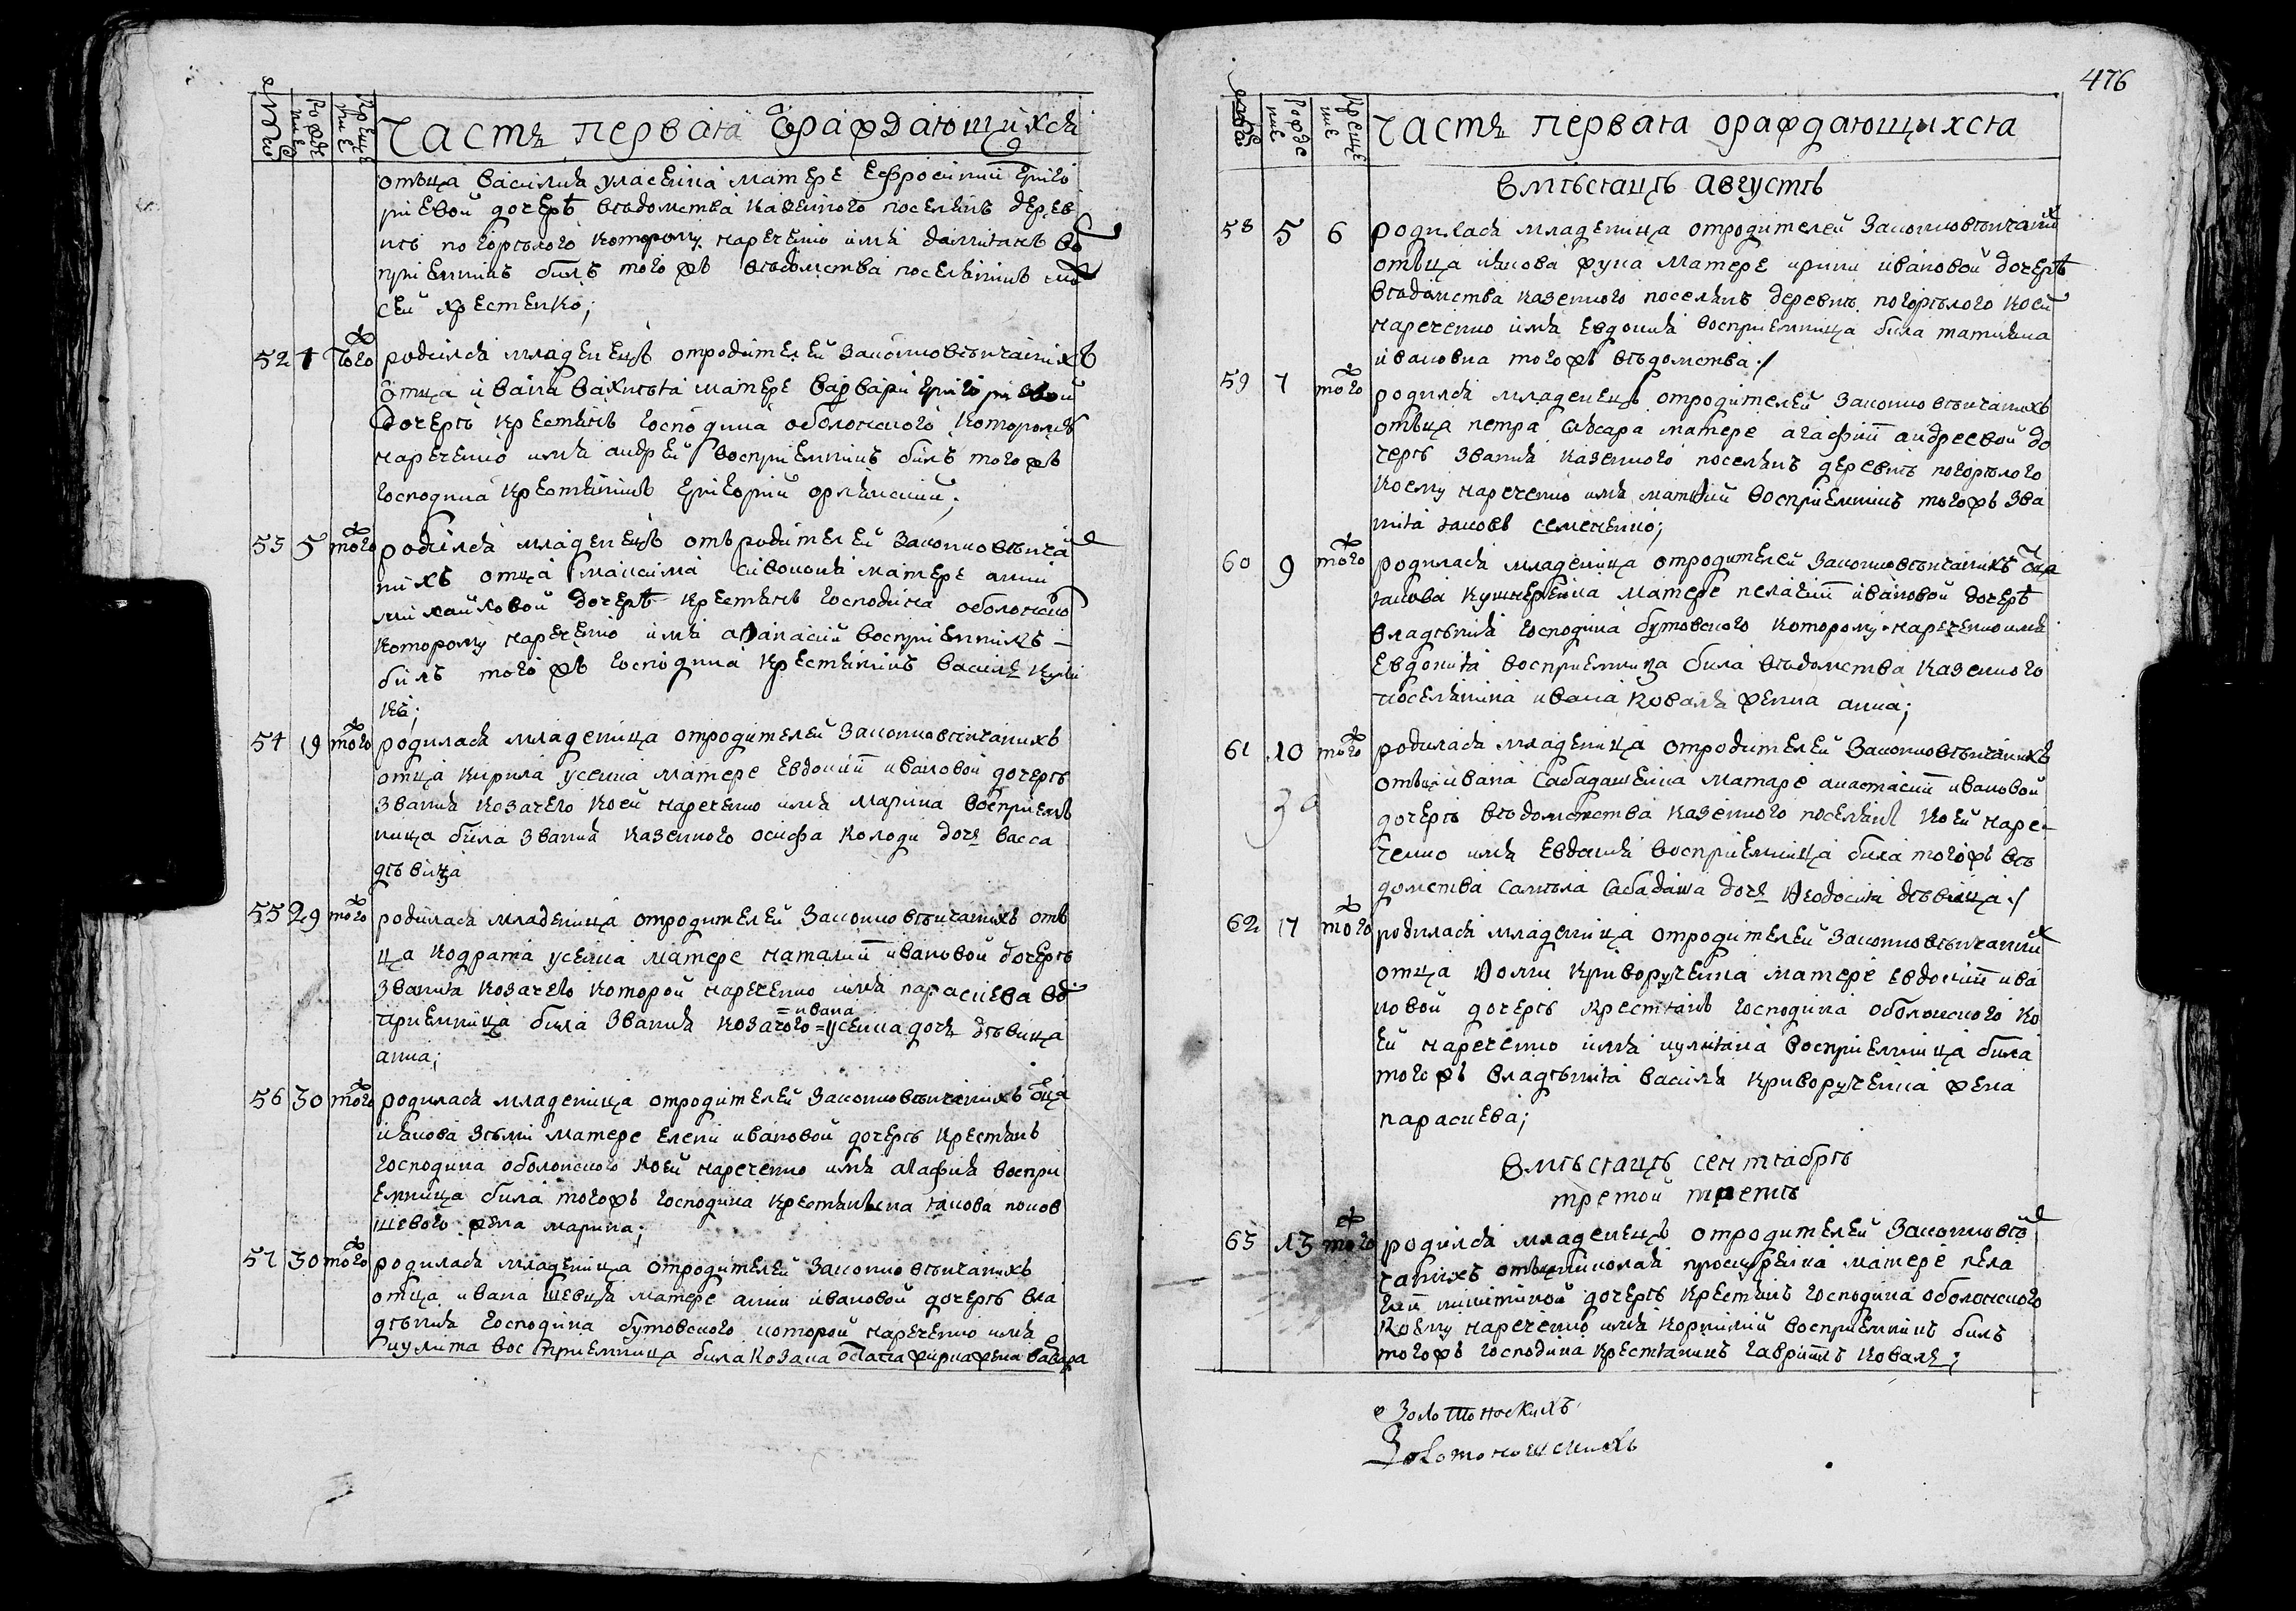 Число
Рожде
ние
Креще
ние
Часть первая ѡраждающихся
отъца василия уласенка матере ефросинии григо
риевой дочерѣ вѣдомства казенного поселянъ дерев
нѣ погорѣлого которому наречено имя дамиянъ во
приемникъ билъ того жъ вѣдомства поселянинъ мо
сей хрестенко;
52 1 того ж родился младенецъ отродителей законновѣнчанихъ
отца ивана вахнѣта матере варвари григориевой
дочерѣ крестянъ господина оболонского которому
наречено имя андрей восприемникъ билъ того жъ
господина крестянинъ григорий орлянский;
53 5 того ж родился младенецъ отъродителей законновѣнча
нихъ отца максима сивоконя матере анни
михайловой дочерѣ крестянъ господина оболонско
которому наречено имя аѳанасий восприемникъ –
билъ того жъ господина крестянинъ василь кули
ка;
54 19 того ж родилася младеница отродителей законновѣнчанихъ
отца кирила усенка матере евдокии ивановой дочерѣ
звания козачего коей наречено имя марина восприемъ
ница била звания казенного осифа колоди дочь васса
дѣвица
55 29 того ж родилася младеница отродителей законно вѣнчанихъ отъ
ца кодрата усенка матере наталии ивановой дочерѣ
звания козачего которой наречено имя параскева во
=ивана
приемница била звания козачого =усенка дочь дѣвица
анна;
56 30 того ж родилася младеница отродителей законновѣнчанихъ оца
иякова зѣмы матере елени ивановой дочерѣ крестянъ
господина оболонского коей наречено имя агафия воспри
емница била тогожъ господина крестянъна якова попов
щевого жена марина;
57 30 того ж родилася младеница отродителей законно вѣнчанихъ
отца ивана шевця матере анни ивановой дочерѣ вла
дѣния господина бутовского которой наречено имя
иулита восприемница била козака остапа жирна жена вавара
476
Число
Рожде
ние
Креще
ние
Часть первая ораждающихся
Вмѣсяцѣ августѣ
58 5 6 родилася младеница отродителей законновѣнчаних
отъца иякова жука матере ирини ивановой дочерѣ
вѣдомства казенного поселянъ деревнѣ погорѣлого коей
наречено имя евдокия восприемница била татияна
ивановна того жъ вѣдомства ./
59 7 того ж родился младенецъ отродителей законно вѣнчанихъ
отъца петра слѣсара матере агафии андреевой до
черѣ звания казенного поселянъ деревнѣ погорѣлого
коему наречено имя матѳий восприемникъ тогожъ зва
ния яковъ семененко;
60 9 того ж родилася младеница отродителей законновѣнчанихъ оца
якова кушнеренка матере пелагии ивановой дочерѣ
владѣния господина бутовского которому наречено имя
евдокия восприемница била вѣдомства казенного
поселянина ивана коваля женна анна;
61 10 того ж родилася младеница отродителей законновѣнчанихъ
отъца ивана сабадашенка матаре анастасии ивановой
дочерѣ вѣдомства казенного поселянъ коей наре–
ченно имя евдокия восприемница била тогожъ вѣ
домства самѣла сабадаша дочь ѳеодосия дѣвица ./
62 17 того ж родилася младеница отродителей законновѣнчаних
отца ѳоми криворученка матере евдокии ива
новой дочерѣ крестянъ господина оболонского ко
ей наречено имя иулияна восприемница била
того жъ владѣния василя криворученка жена
параскева;
Вмѣсяцѣ сентябрѣ
третой третѣ
63 13 того ж родился младенецъ отродителей законновѣ
чанихъ отъца николая проскуренка матере пела
гии никитиной дочерѣ крестянъ господина оболонского
коему наречено имя корнилий восприемникъ билъ
того жъ господина крестянинъ гаврилъ коваль;
Золотоноскихъ